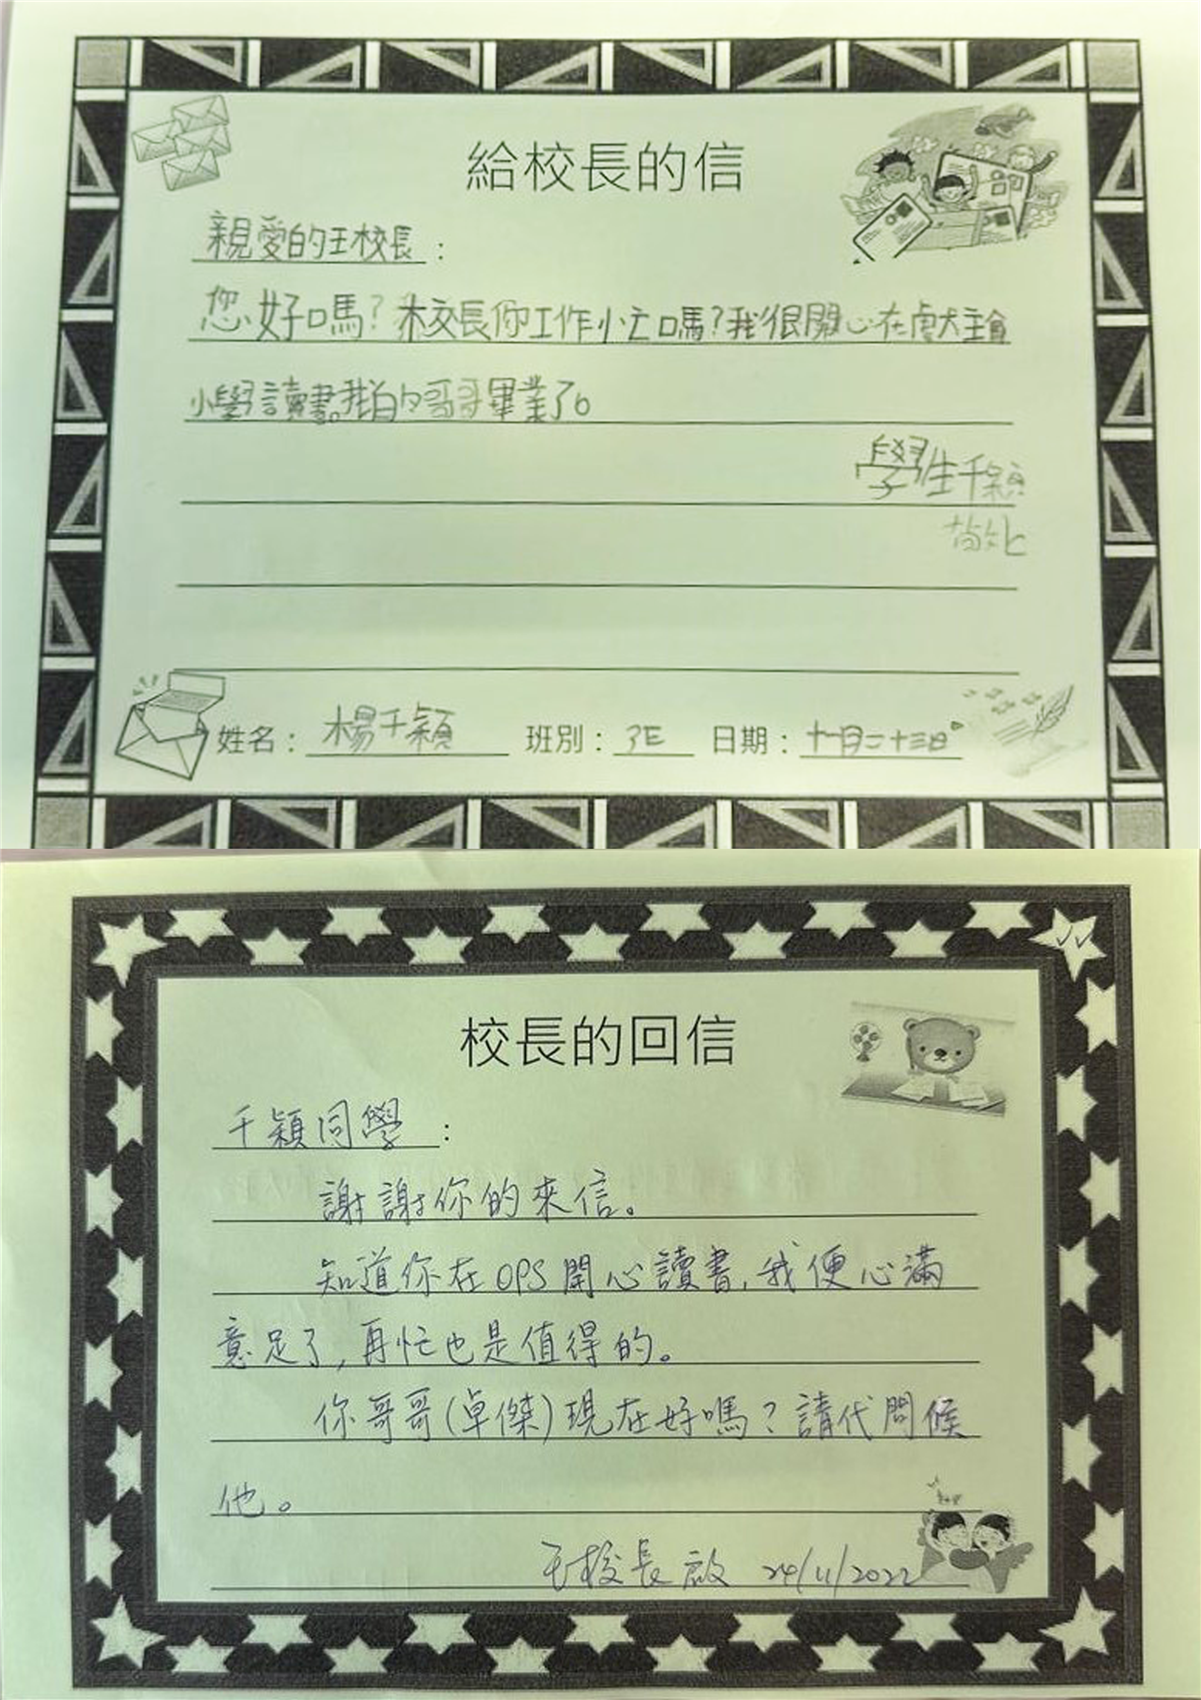 給校長的信
親愛的王校長：
您好嗎？校長你工作忙嗎？我很開心在獻主會
小學讀書。我的哥哥畢業了。
學生千穎
敬上
姓名：楊千穎 班別：3E 日期：十一月二十三日
校長的回信
千穎同學：
謝謝你的來信。
知道你在OPS開心讀書，我便心滿
意足了，再忙也是值得的。
你哥哥(卓傑)現在好嗎？請代問候
他。
王校長啟 24/11/2022